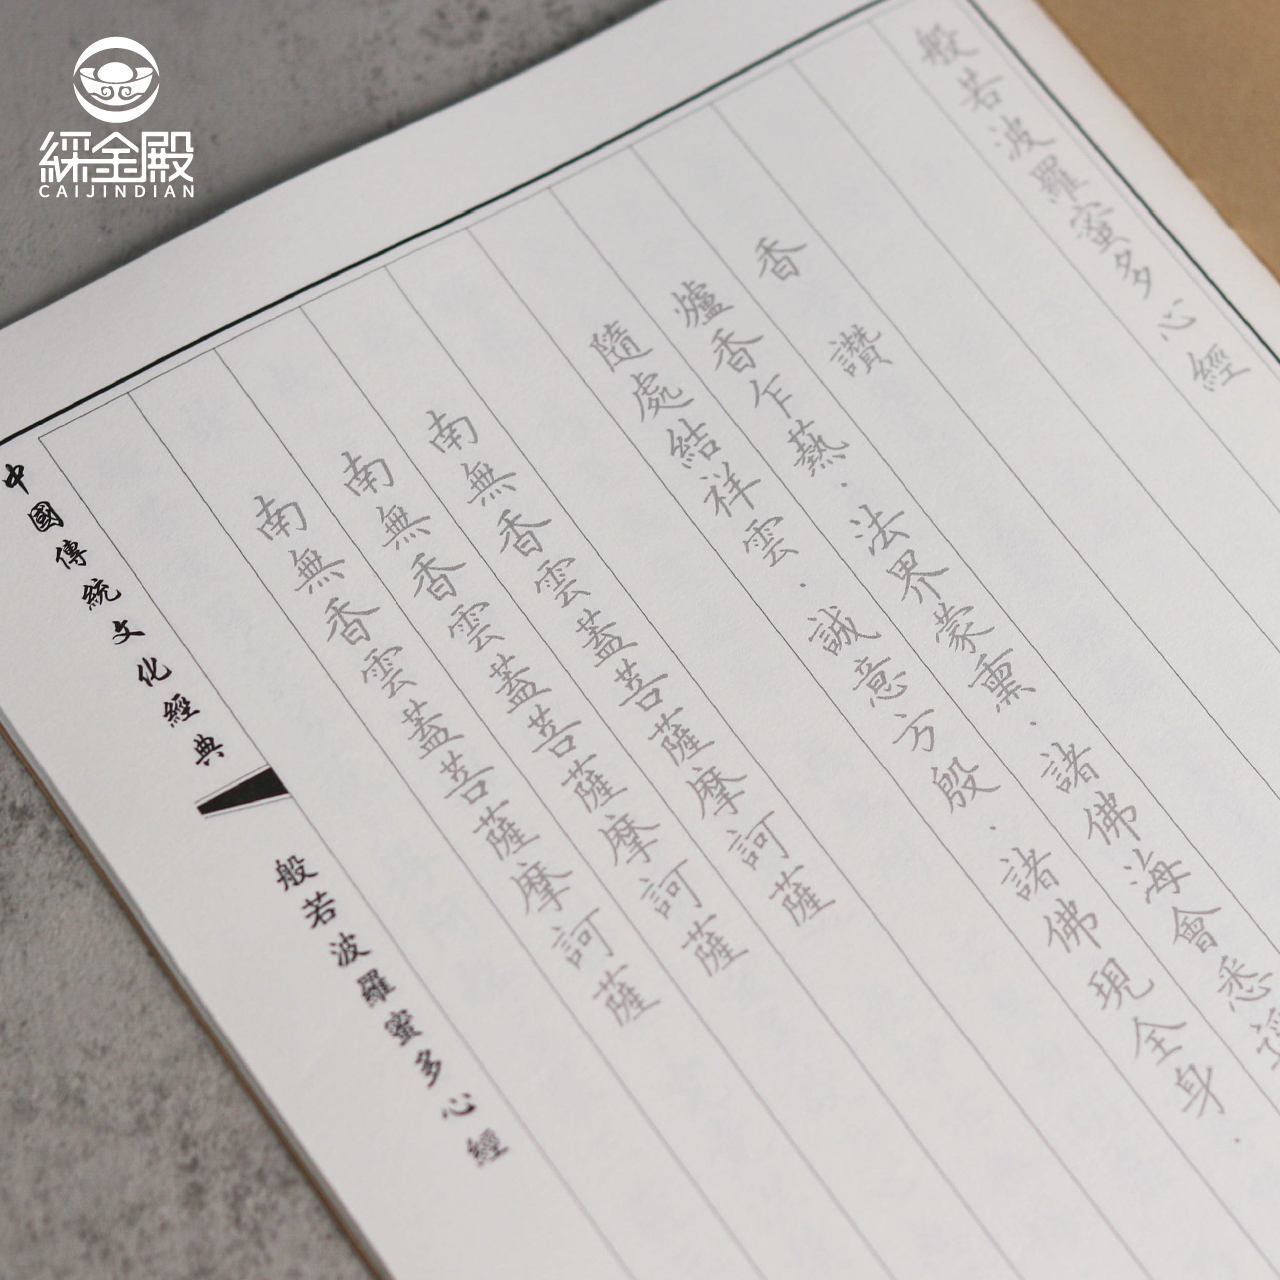 綵金殿
CAIJINDIAN
般若波羅蜜多心經
香讚
爐香乍爇．法界蒙熏．諸佛海會悉
隨處結祥雲．誠意方殷．諸佛現全身．
南無香雲蓋菩薩摩訶薩
南無香雲蓋菩薩摩訶薩
南無香雲蓋菩薩摩訶薩
中國傳統文化經典
般若波羅蜜多心經